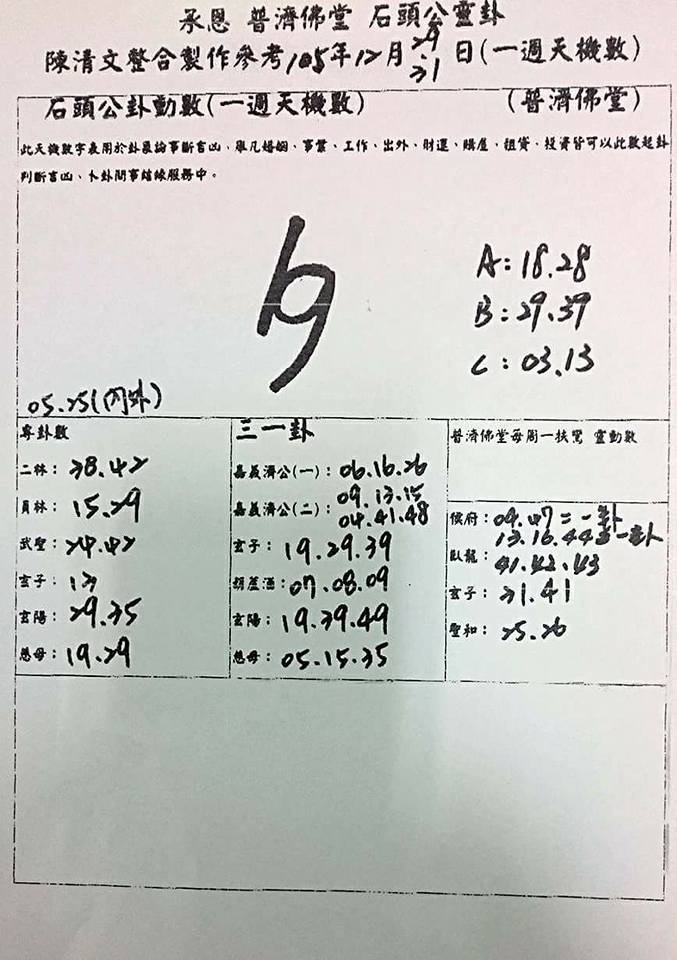 承恩 普濟佛堂 石頭公靈卦
陳清文整合製作參考105年12月29.31日(一週天機數)
石頭公卦動數(一週天機數) (普濟佛堂)
此天機數字表用於卦象論事斷吉凶、舉凡婚姻、事業、工作、出外、財運、購屋、租賃、投資皆可以此數起卦
判斷吉凶、卜卦問事結緣服務中。
A:18.28
B:29.39
C:03.13
05.25(內外)
專卦數
二林:28.42
員林:15.29
武聖:24.42
玄子:12
玄陽:29.35
慈母:19.29
三一卦
嘉義濟公(一):06.16.26
嘉義濟公(二):09.13.15
04.41.48
玄子:19.29.39
葫蘆酒:07.08.09
玄陽:19.39.49
慈母:05.15.35
普濟佛堂每周一扶鸞 靈動數
侯府:09.47=一卦
13.16.44 一卦
臥龍:41.42.43
玄子:31.41
聖和:25.26